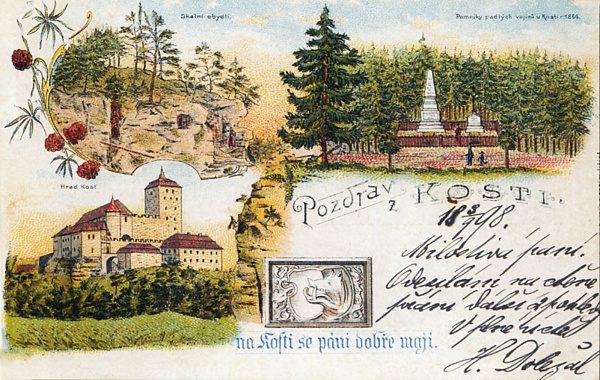 Skalní obydlí.
Pomníky padlých vojínů u Kosti r. 1866.
Hrad Kosť
Pozdrav
z KOSTI.
18 5/9 98.
Milostivá paní.
Odesílám na
přání další
H. Doležal
na Kosti se páni dobře mají.